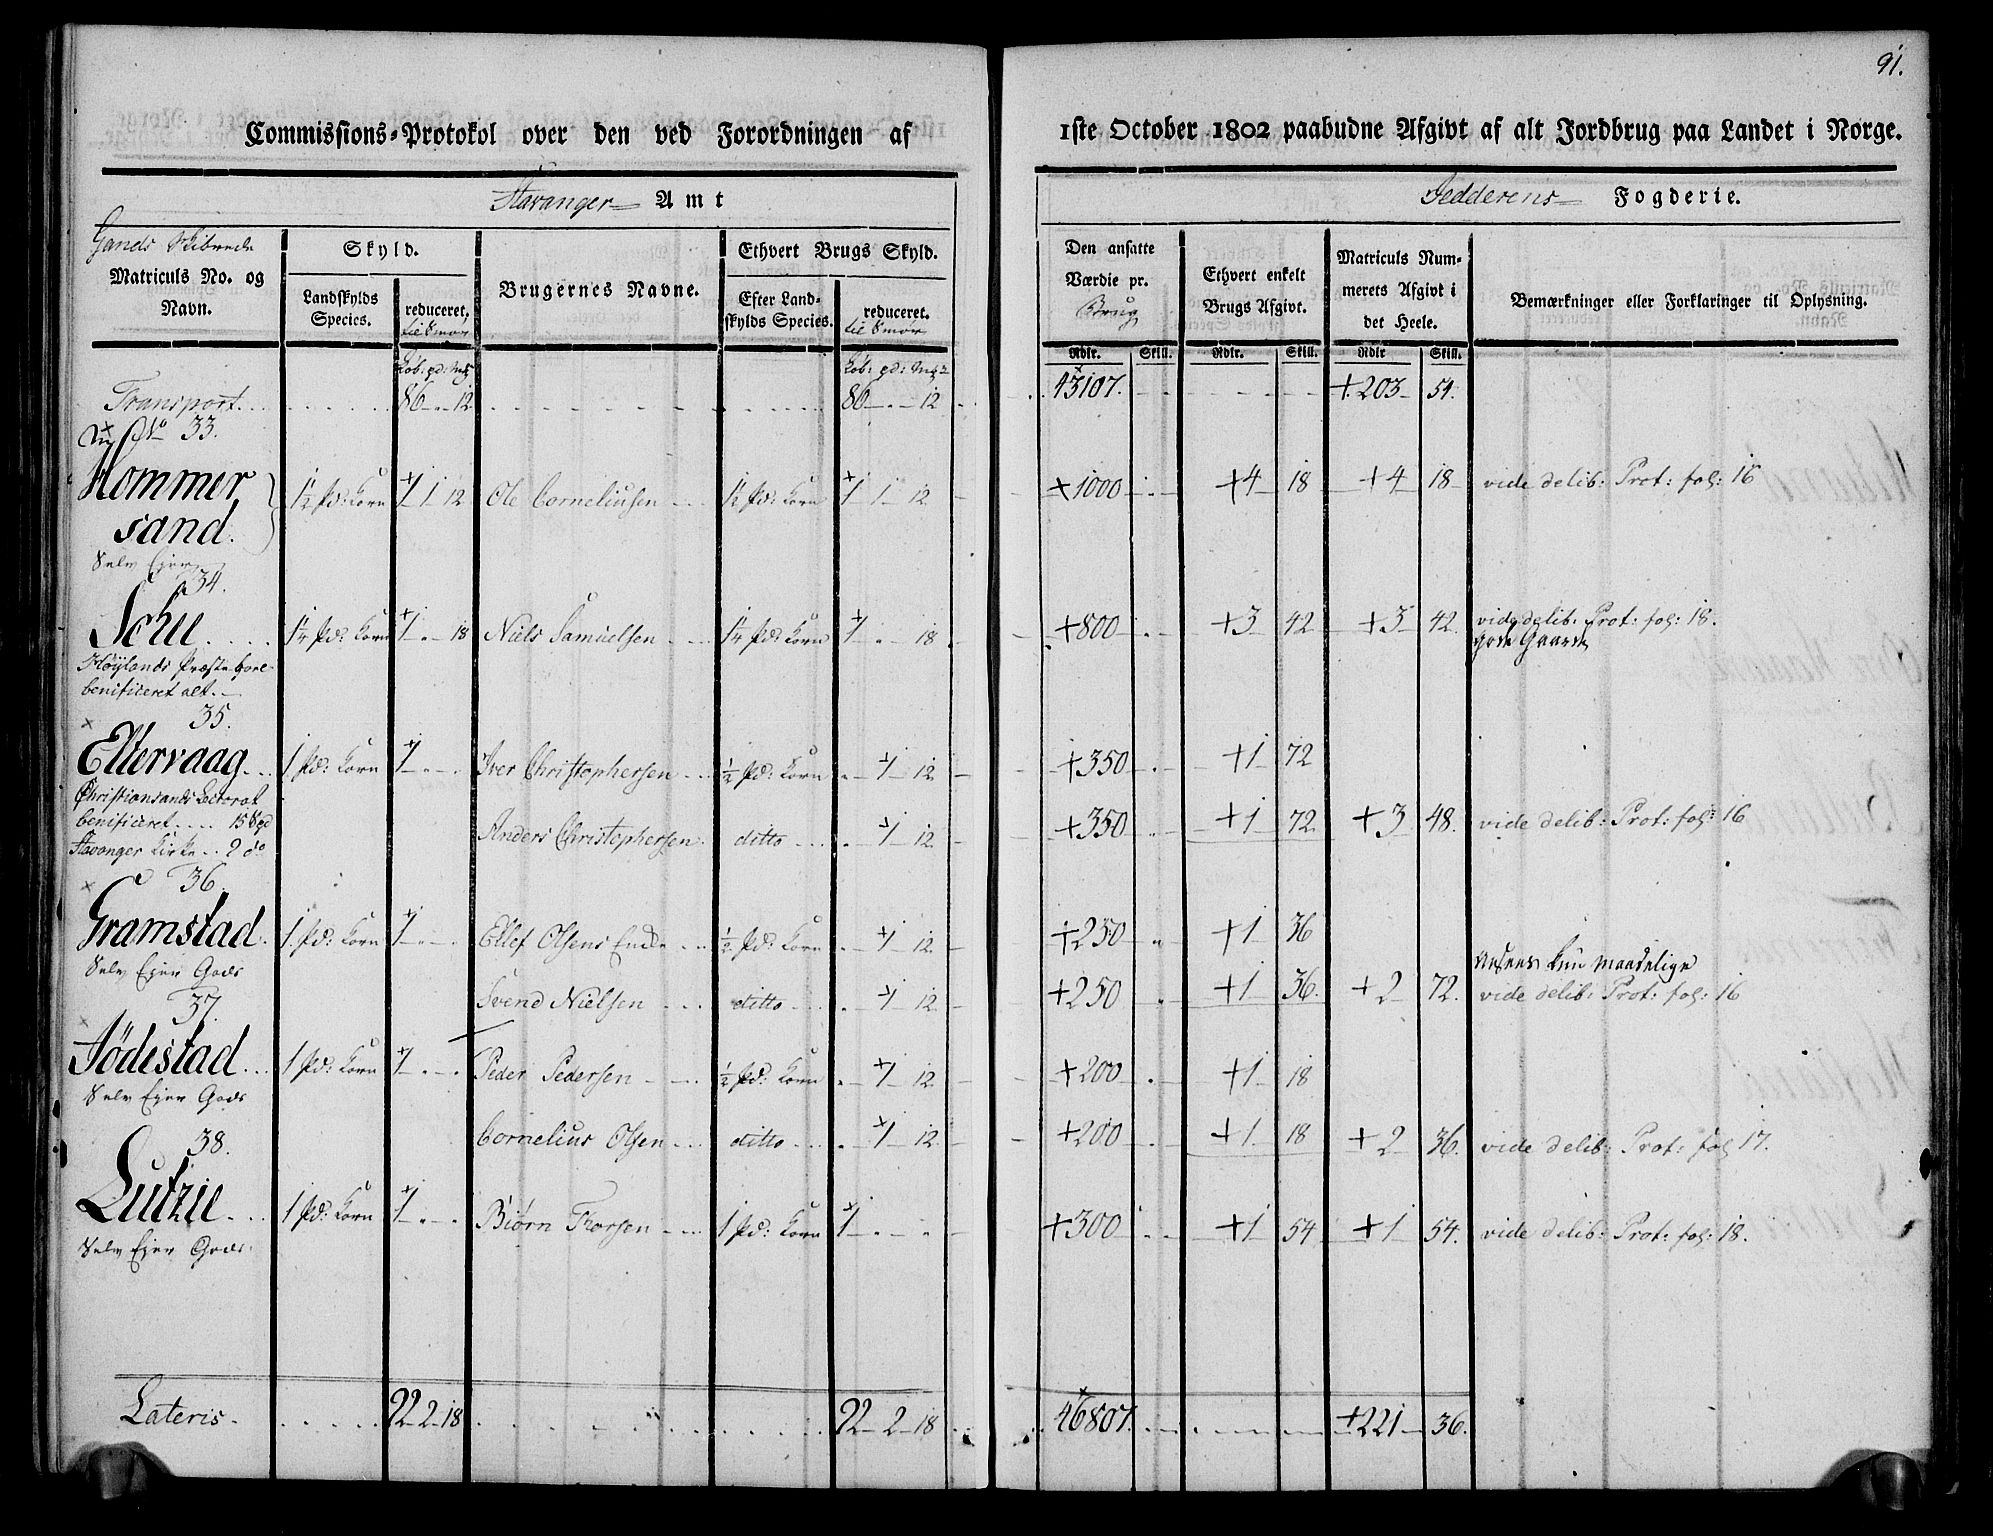 91.
Commissions-Protokol over den ved Forordningen af 1ste October 1802 paabudne Afgivt af alt Jordbrug paa Landet i Norge.
Stavanger Amt
Jedderens Fogderie.
Gands Skibrede
Matriculs No. og Navn.
Skyld.
Landskylds Species.
reduceret, til Smør
Brugernes Navne.
Ethvert Brugs Skyld.
Efter Landskylds Species.
reduceret. til Smør
Den ansatte Værdie pr. Brug
Ethvert enkelt Brugs Afgivt.
Matriculs Nummerets Afgivt i det Heele.
Bemærkninger eller Forklaringer til Oplysning.
Rdlr. Skill. Rdlr. Skill. Rdlr Skill.
Transport. 86 - 12 86 - 12 43107. +203 54.
No 33.
Hommersand. 1½ Pd: Korn 1 1 12 Ole Corneliusen 1½ Pd: Korn 1 1 12 +1000 +4 18 +4 18 vide delib: Prot: fol: 16
Selv Ejer
34.
1¼ Pd: Korn 1 - 18 Niels Samuelsen 1¼ Pd: Korn 1 18 +800 +3 42 +3 42. vide delib: Prot: fol: 18.
gode Gaarde
Høylands Præstebore
benificeret alt.
35.
Eltervaag 1 Pd: Korn 1 Iver Christophersen ½ Pd: Korn 1 12 +350 +1 72
Christiansands Lectorat
benificeret 15
Anders Christophersen ditto 1 12 +350 +1 72 +3 48. vide delib: Prot: fol: 16
Stavanger Kirke 9 do
36.
Gramstad. 1 Pd: Korn 1 Ellef Olsens Enke ½ Pd: Korn 1 12 +250 +1 36
Selv Ejer Gods
kun maadelige
Svend Nielsen ditto 1 12 +250 +1 36. +2 72. vide delib: Prot: fol: 16
37.
Jødestad 1 Pd: Korn 1 Peder Pedersen ½ Pd: Korn 1 12 +200 +1 18
Selv Ejer Gods
Cornelius Olsen ditto 1 12 +200 +1 18 +2 36. vide delib: Prot: fol 17.
38.
Lutzie 1 Pd: Korn 1 Biørn Thorsen 1 Pd: Korn 1 +300 +1 54 +1 54. vide delib: Prot: fol: 18.
Selv Ejer Gods.
Lateris. 92-2-18 92-2-18 46807. +221 36.